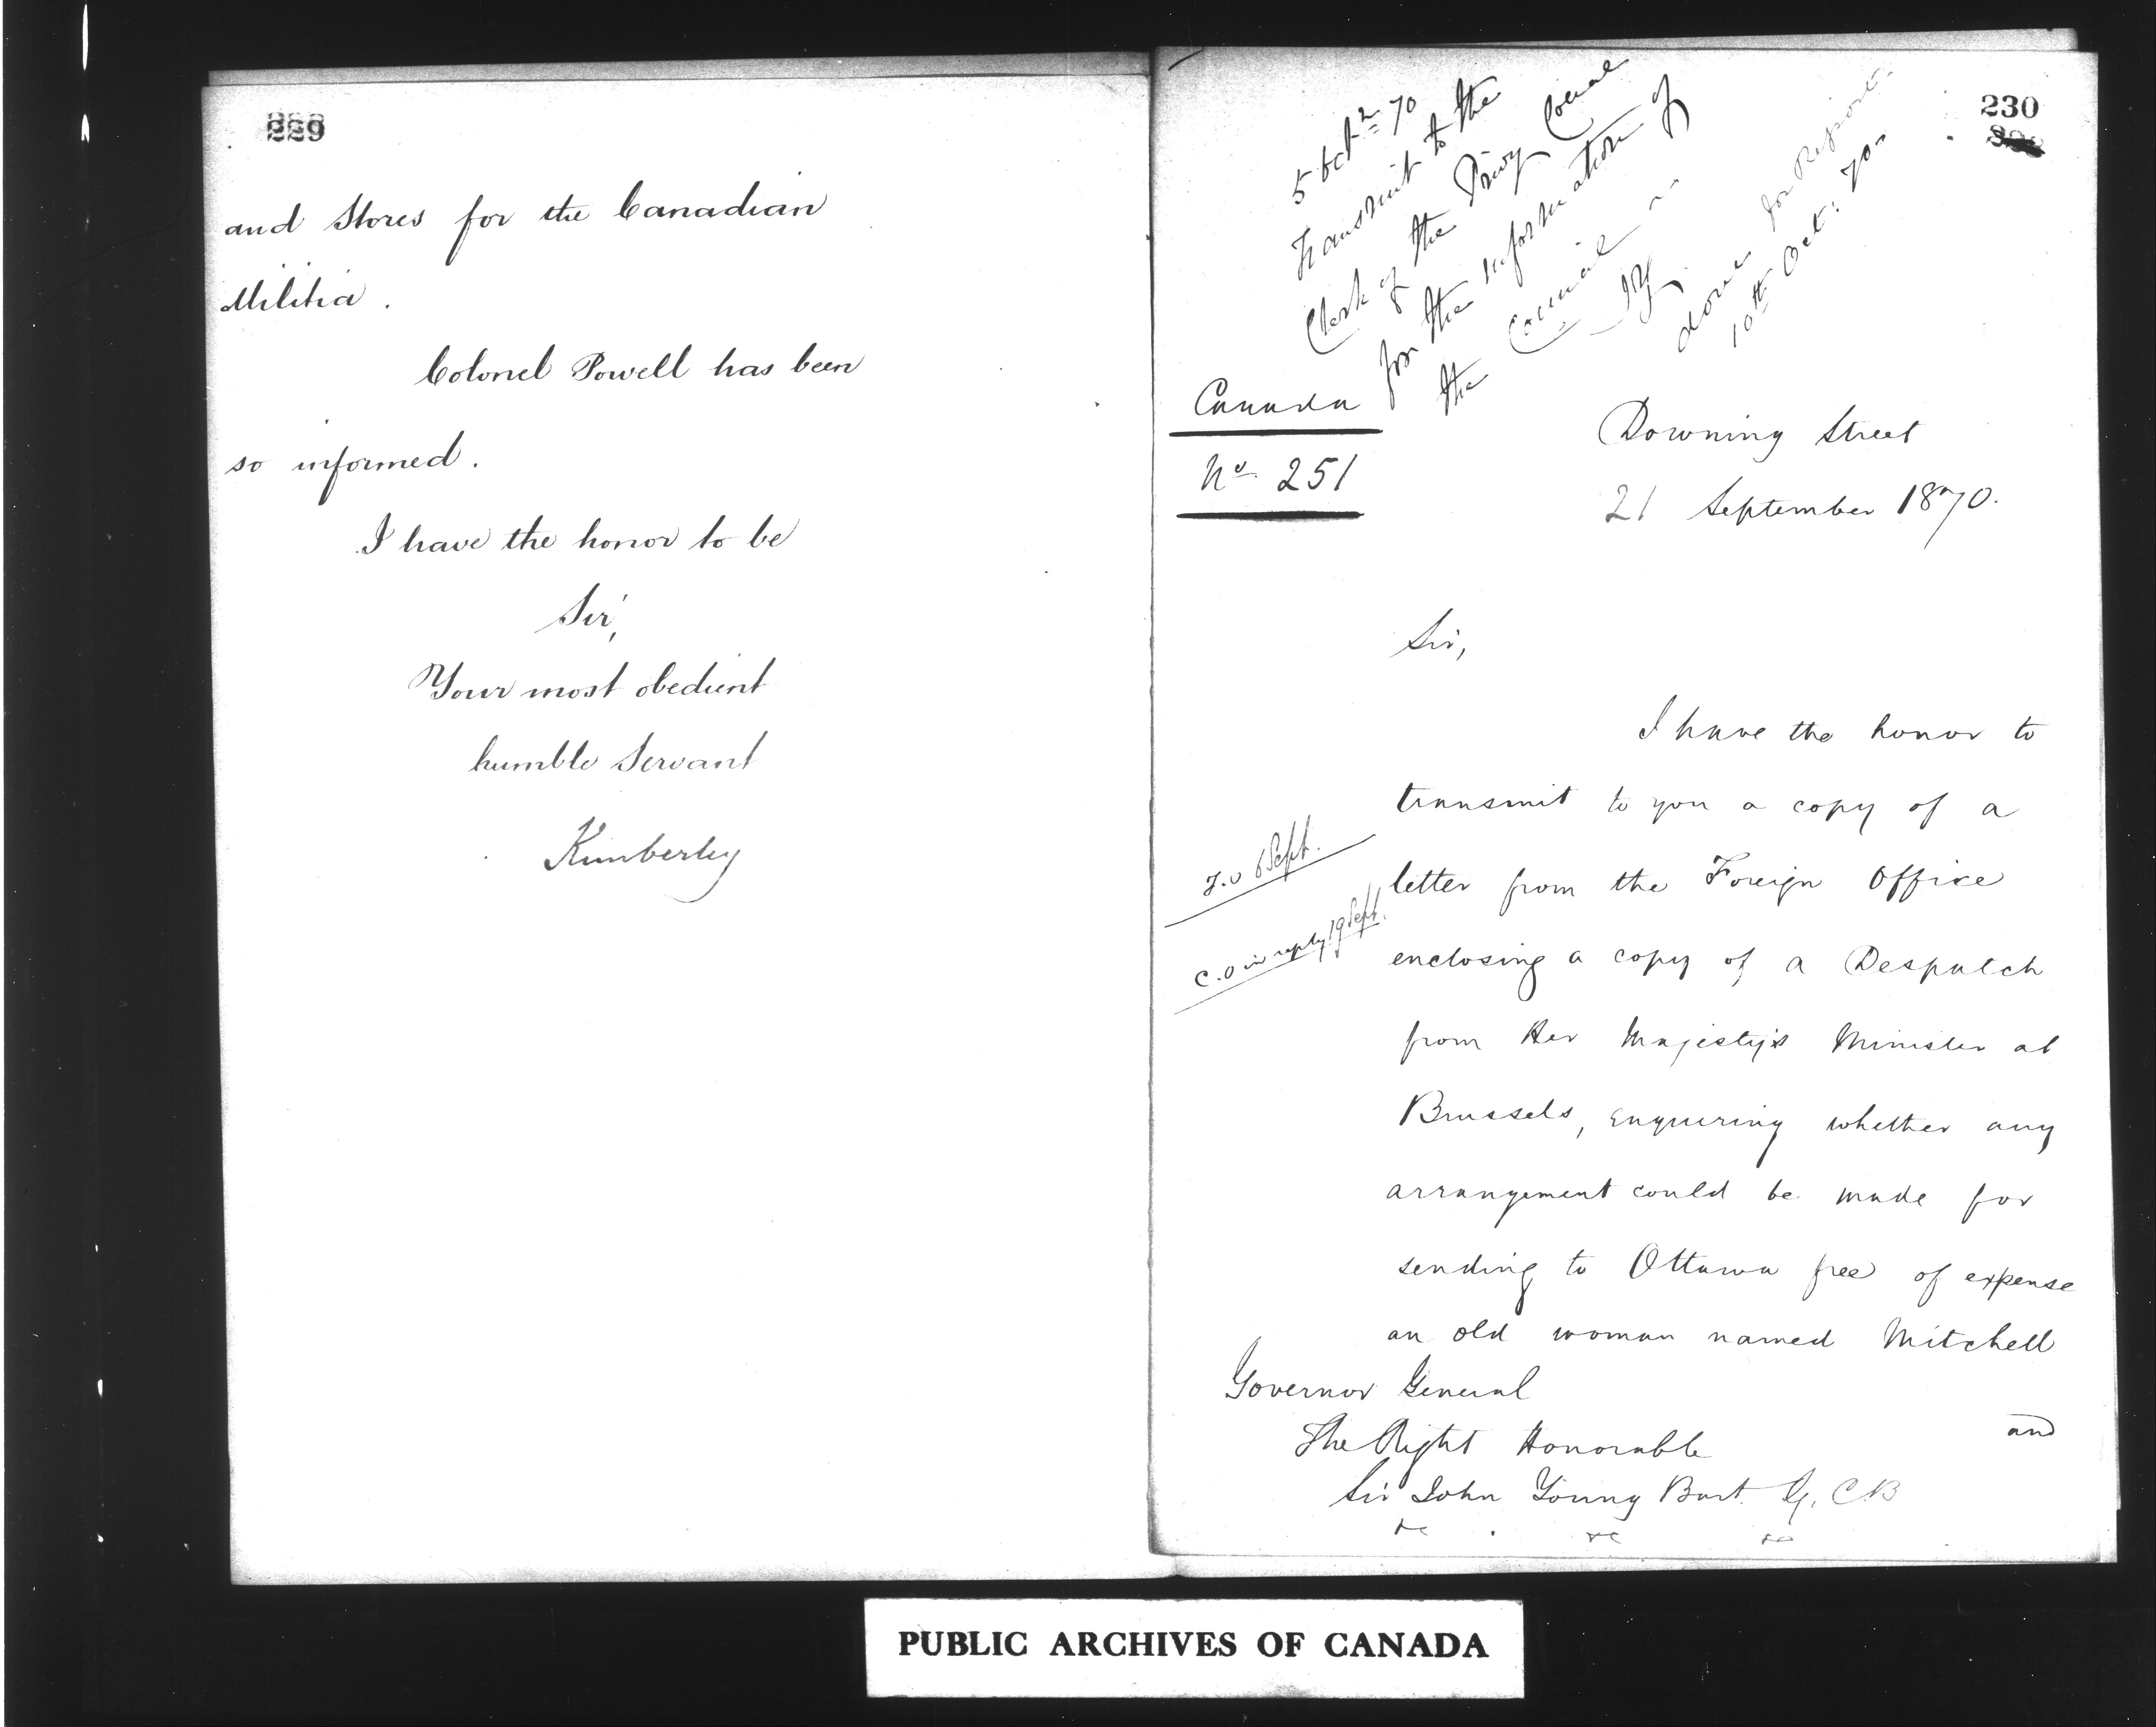 229
and Stores for the Canadian
Militia.
Colonel Powell has been
so informed.
I have the honor to be
Sir,
Your most obedient
humble Servant
Kimberley
230
5 Oct 70
Transmit to the
Clerk of the Privy Council
for the information of
the Council
JY
done for Report.
10th Oct: 70.
Canada
No. 251
Downing Street
21 September 1870.
Sir,
I have the honor to
transmit to you a copy of a
F.O 6 Sept.
letter from the Foreign Office
C.O in reply 19 Sept.
enclosing a copy of a Despatch
from Her Majesty's Minister at
Brussels, enquiring whether any
arrangement could be made for
sending to Ottawa free of expense
an old woman named Mitchell
Governor General
The Right Honorable
and
Sir John Young Bart. G.C.B
&c &c &c
PUBLIC ARCHIVES OF CANADA